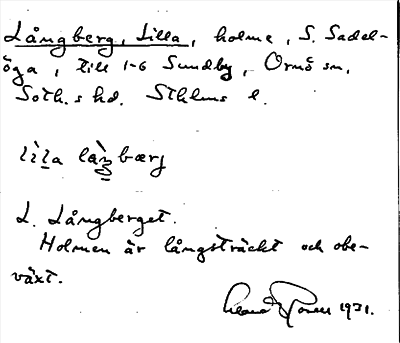 Långberg, Lilla, holme, S. Sadel-
öga, till 1-6 Sundby, Ornö sn,
Soth.s hd. Sthlms l.
L. Långberget.
Holmen är långsträckt och obe-
växt.
1931.